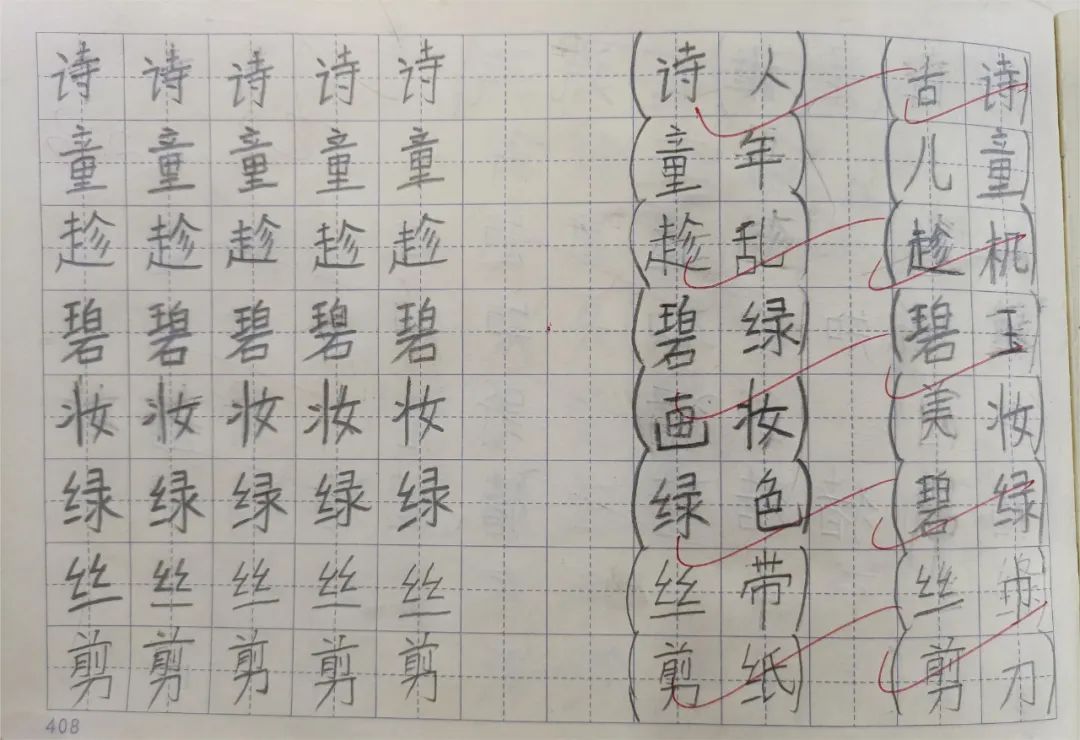 诗 诗 诗 诗 诗 (诗人) (古诗)
童 童 童 童 童 (童年) (儿童)
趁 趁 趁 趁 趁 (趁乱) (趁机)
碧 碧 碧 碧 碧 (碧绿) (碧玉)
妆 妆 妆 妆 妆 (画妆) (美妆)
绿 绿 绿 绿 绿 (绿色) (碧绿)
丝 丝 丝 丝 丝 (丝带) (丝巾)
剪 剪 剪 剪 剪 (剪纸) (剪刀)
408